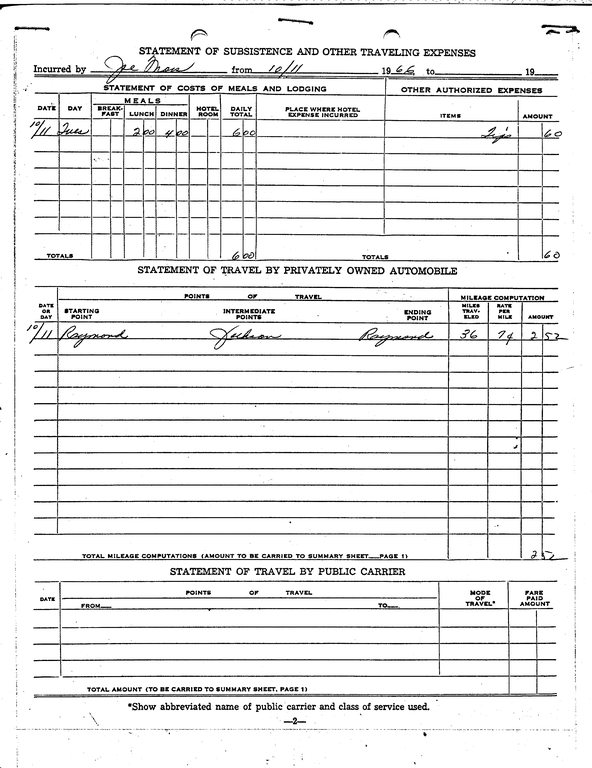 STATEMENT OF SUBSISTENCE AND OTHER TRAVELING EXPENSES
Incurred by Joe from 10/11 1966, to 19
STATEMENT OF COSTS OF MEALS AND LODGING OTHER AUTHORIZED EXPENSES
DATE DAY MEALS BREAK-FAST LUNCH DINNER HOTEL ROOM DAILY TOTAL PLACE WHERE HOTEL EXPENSE INCURRED ITEMS AMOUNT
10/11 Tues 2 00 4 00 6 00 Tips 60
TOTALS 6 00 TOTALS 60
STATEMENT OF TRAVEL BY PRIVATELY OWNED AUTOMOBILE
POINTS OF TRAVEL MILEAGE COMPUTATION
DATE OR DAY STARTING POINT INTERMEDIATE POINTS ENDING POINT MILES TRAV-ELED RATE PER MILE AMOUNT
10/11 Raymond Jackson Raymond 36 7¢ 2 52
TOTAL MILEAGE COMPUTATIONS (AMOUNT TO BE CARRIED TO SUMMARY SHEET__PAGE 1) 2 52
STATEMENT OF TRAVEL BY PUBLIC CARRIER
DATE POINTS OF TRAVEL MODE OF TRAVEL* FARE PAID AMOUNT
FROM__ TO__
TOTAL AMOUNT (TO BE CARRIED TO SUMMARY SHEET, PAGE 1)
*Show abbreviated name of public carrier and class of service used.
—2—